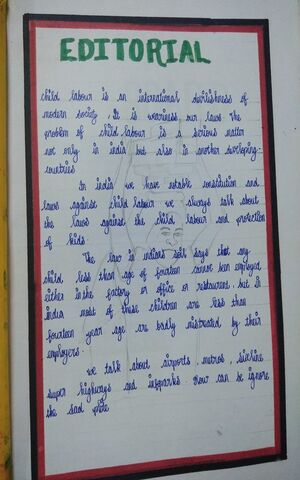 EDITORIAL
child labour is an international devilishness of
modern society, It is weariness our laws The
problem of child labour is a serious matter
not only in india but also in another developing
countries
In india we have notable constitution and
laws against child labour we always talk about
the laws against the child labour and protection
of kids
The law in indian soil says that any
child less than age of fourteen cannot been employed
either in the factory or office or restaurant but in
india most of these children are less than
fourteen year age are badly mistreated by their
employers
we talk about airports, metros,
super highways and infoparks How can be ignore
the sad